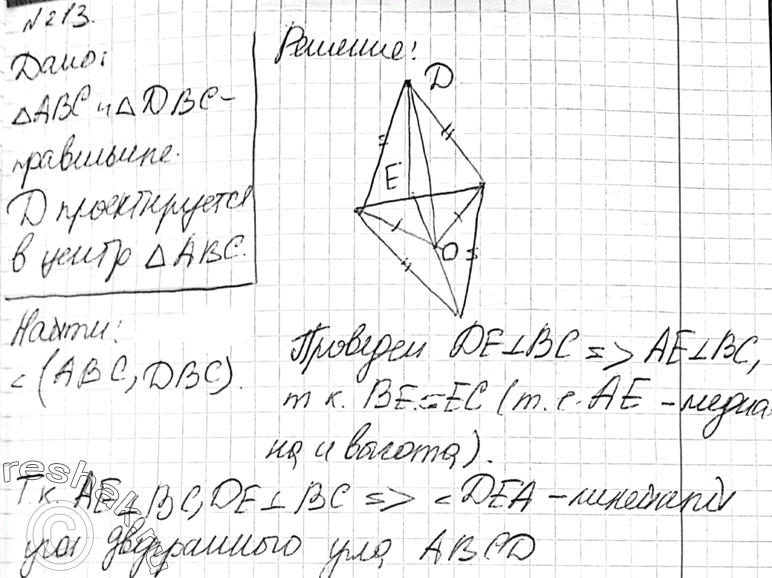 №213.
Дано:
△ABC и △DBC-
правильные.
D проектируется
в центр △ABC.
Найти:
∠(ABC, DBC).
Решение:
D
E
O
Проведем DE⊥BC => AE⊥BC,
т.к. BE=EC (т.е. AE - медиа-
на и высота).
Т.к. AE⊥BC, DE⊥BC => ∠DEA - линейный
угол двугранного угла ABCD